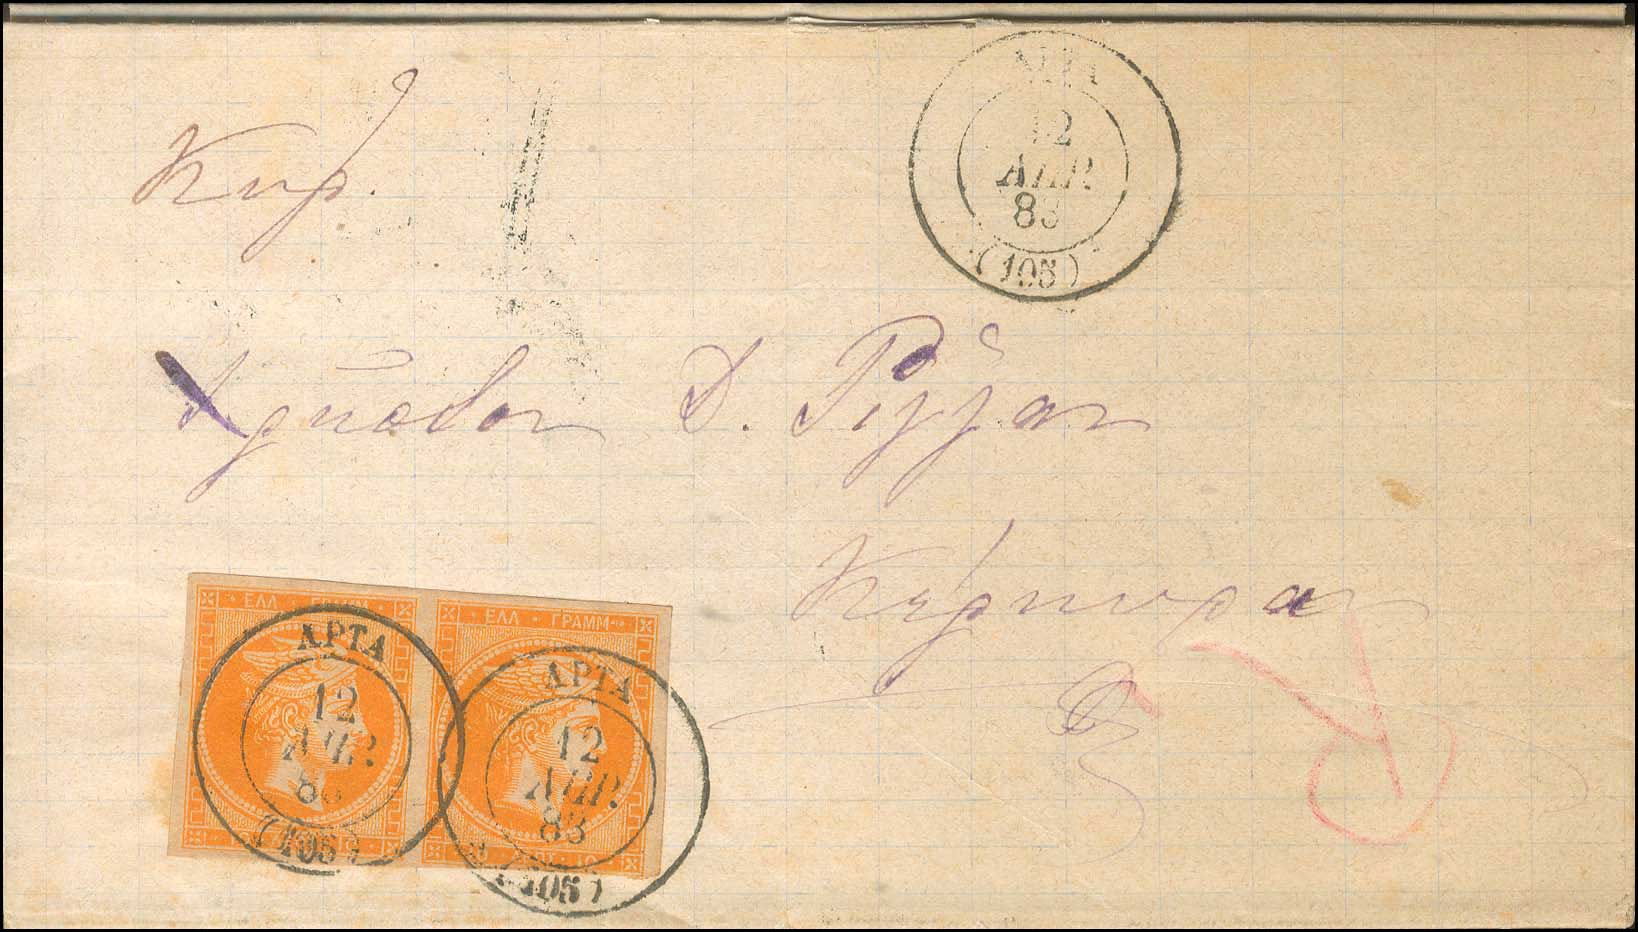 ΑΡΤΑ
12
ΑΠΡ.
83
(105)
Κυρ.
Δ. Ριζζαν
Κέρκυραν
ΕΛΛ · ΓΡΑΜΜ
ΕΛΛ · ΓΡΑΜΜ
ΑΡΤΑ
12
ΑΠΡ.
83
(105)
ΑΡΤΑ
12
ΑΠΡ.
83
(105)